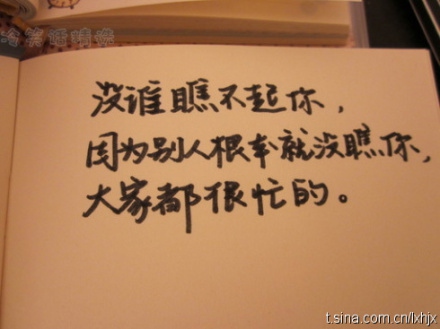 冷笑话精选
没谁瞧不起你，
因为别人根本就没瞧你，
大家都很忙的。
t.sina.com.cn/lxhjx